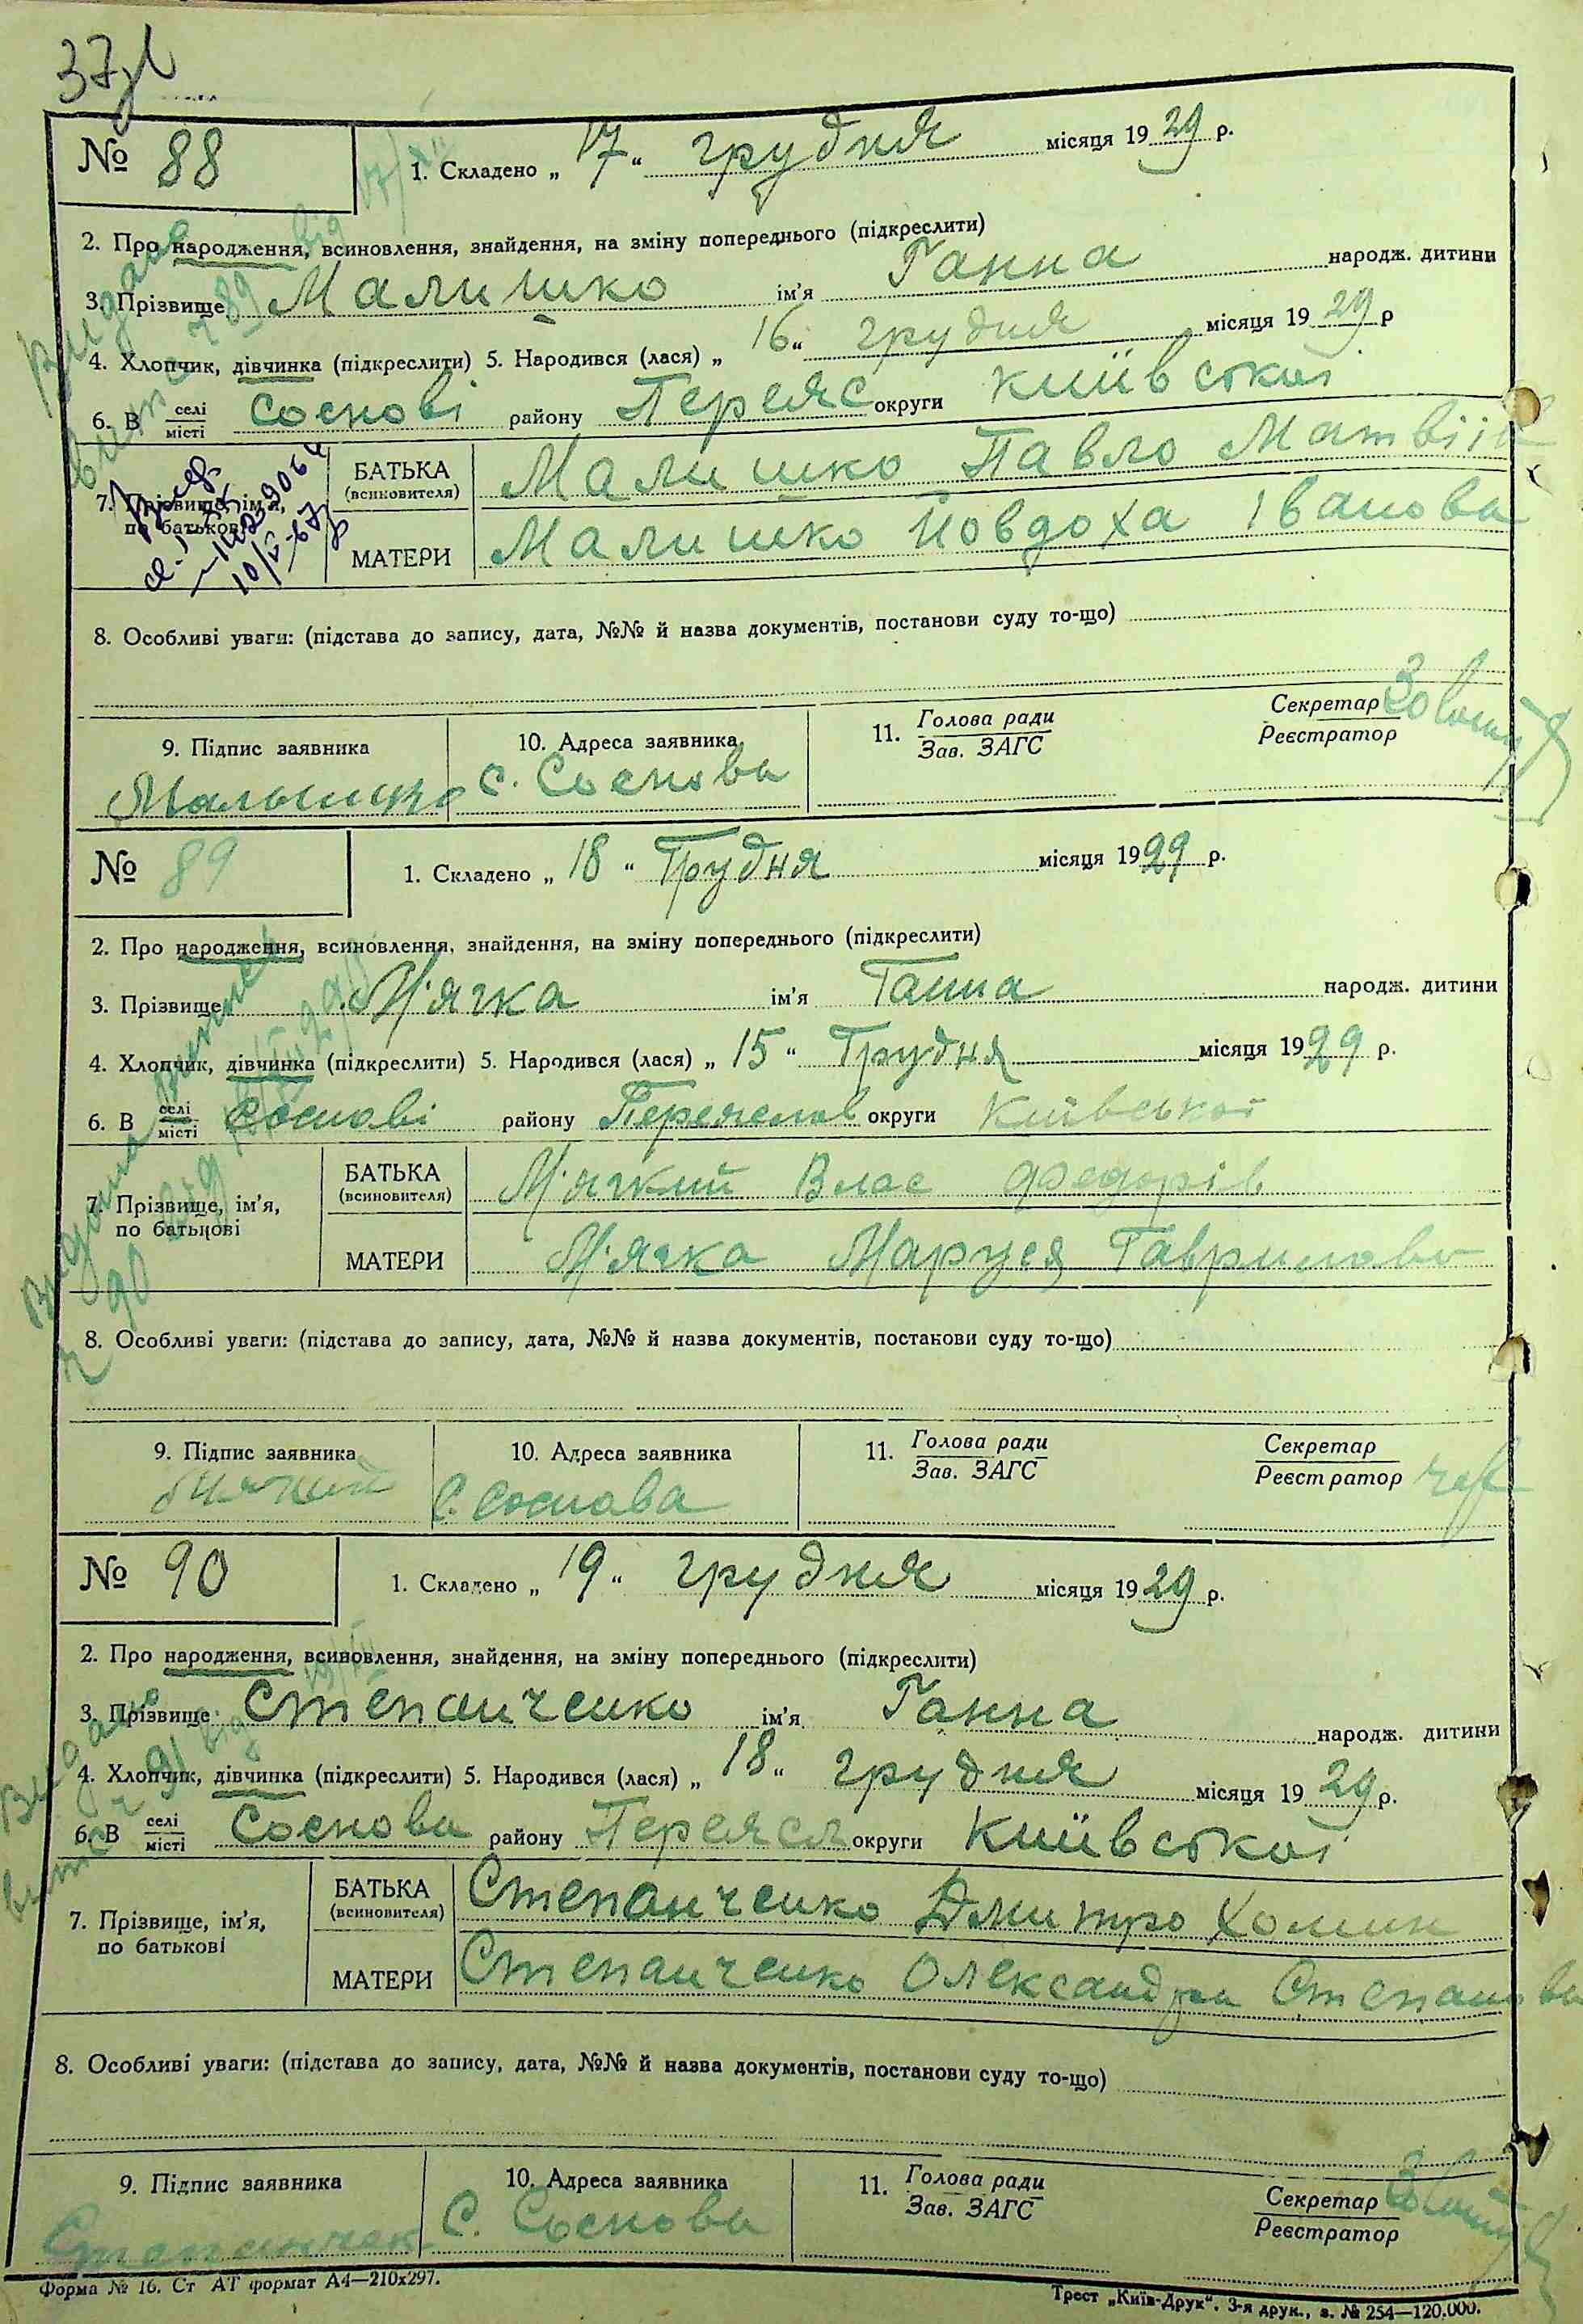 37
№ 88
1. Складено „ 17 " грудня місяця 1929 р.
2. Про народження, всиновлення, знайдення, на зміну попереднього (підкреслити)
3. Прізвище Малишко ім'я Ганна народж. дитини
4. Хлопчик, дівчинка (підкреслити) 5. Народився (лася) „ 16 " грудня місяця 1929 р
6. В селі/місті Соснові району Переяс округи Київської
7. Прізвище, ім'я, по батькові
БАТЬКА (всиновителя) Малишко Павло Матвіїв
МАТЕРИ Малишко Йовдоха Іванова
8. Особливі уваги: (підстава до запису, дата, №№ й назва документів, постанови суду то-що)
9. Підпис заявника
10. Адреса заявника
11. Голова ради
Зав. ЗАГС
Секретар
Реєстратор
Малышко
с. Соснова
№ 89
1. Складено „ 18 " Грудня місяця 1929 р.
2. Про народження, всиновлення, знайдення, на зміну попереднього (підкреслити)
3. Прізвище М'ягка ім'я Ганна народж. дитини
4. Хлопчик, дівчинка (підкреслити) 5. Народився (лася) „ 15 " Грудня місяця 1929 р.
6. В селі/місті Соснові району Переяслав округи Київської
7. Прізвище, ім'я, по батькові
БАТЬКА (всиновителя) М'ягкий Влас Федорів
МАТЕРИ М'ягка Маруся Гаврилова
8. Особливі уваги: (підстава до запису, дата, №№ й назва документів, постанови суду то-що)
9. Підпис заявника
10. Адреса заявника
11. Голова ради
Зав. ЗАГС
Секретар
Реєстратор
с. Соснова
№ 90
1. Складено „ 19 " грудня місяця 1929 р.
2. Про народження, всиновлення, знайдення, на зміну попереднього (підкреслити)
3. Прізвище Степанченко ім'я Ганна народж. дитини
4. Хлопчик, дівчинка (підкреслити) 5. Народився (лася) „ 18 " грудня місяця 1929 р.
6. В селі/місті Соснова району Переясл округи Київської
7. Прізвище, ім'я, по батькові
БАТЬКА (всиновителя) Степанченко Дмитро Хомин
МАТЕРИ Степанченко Олександра Степанова
8. Особливі уваги: (підстава до запису, дата, №№ й назва документів, постанови суду то-що)
9. Підпис заявника
10. Адреса заявника
11. Голова ради
Зав. ЗАГС
Секретар
Реєстратор
Степанчек
с. Соснова
Форма № 16. Ст АТ формат А4—210х297.
Трест „Київ-Друк". 3-я друк., з. № 254—120.000.